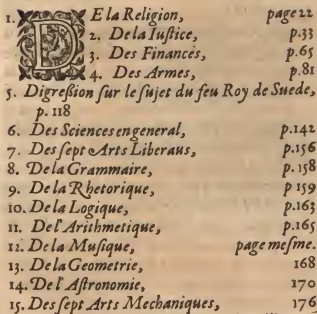 1. DE la Religion, page 22
2. De la Iustice, p.33
3. Des Finances, p.65
4. Des Armes, p.81
5. Digreßion sur le sujet du feu Roy de Suede,
p. 118
6. Des Sciences en general, p.142
7. Des sept Arts Liberaus, p.156
8. De la Grammaire, p. 158
9. De la Rhetorique, p 159
10. De la Logique, p.163
11. De l'Arithmetique, p.165
12. De la Musique, page mesme.
13. De la Geometrie, 168
14. De l'Astronomie, 170
15. Des sept Arts Mechaniques, 176